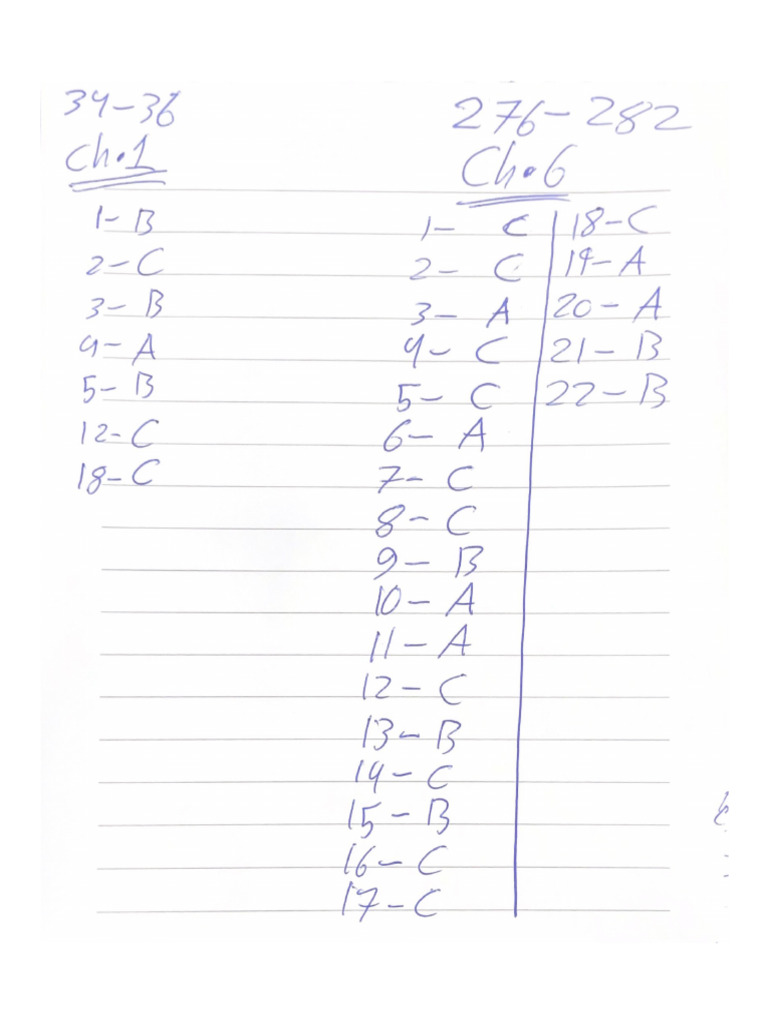 34-36
Ch.1
1- B
2- C
3- B
4- A
5- B
12- C
18- C
276-282
Ch.6
1- C
2- C
3- A
4- C
5- C
6- A
7- C
8- C
9- B
10- A
11- A
12- C
13- B
14- C
15- B
16- C
17- C
18- C
19- A
20- A
21- B
22- B